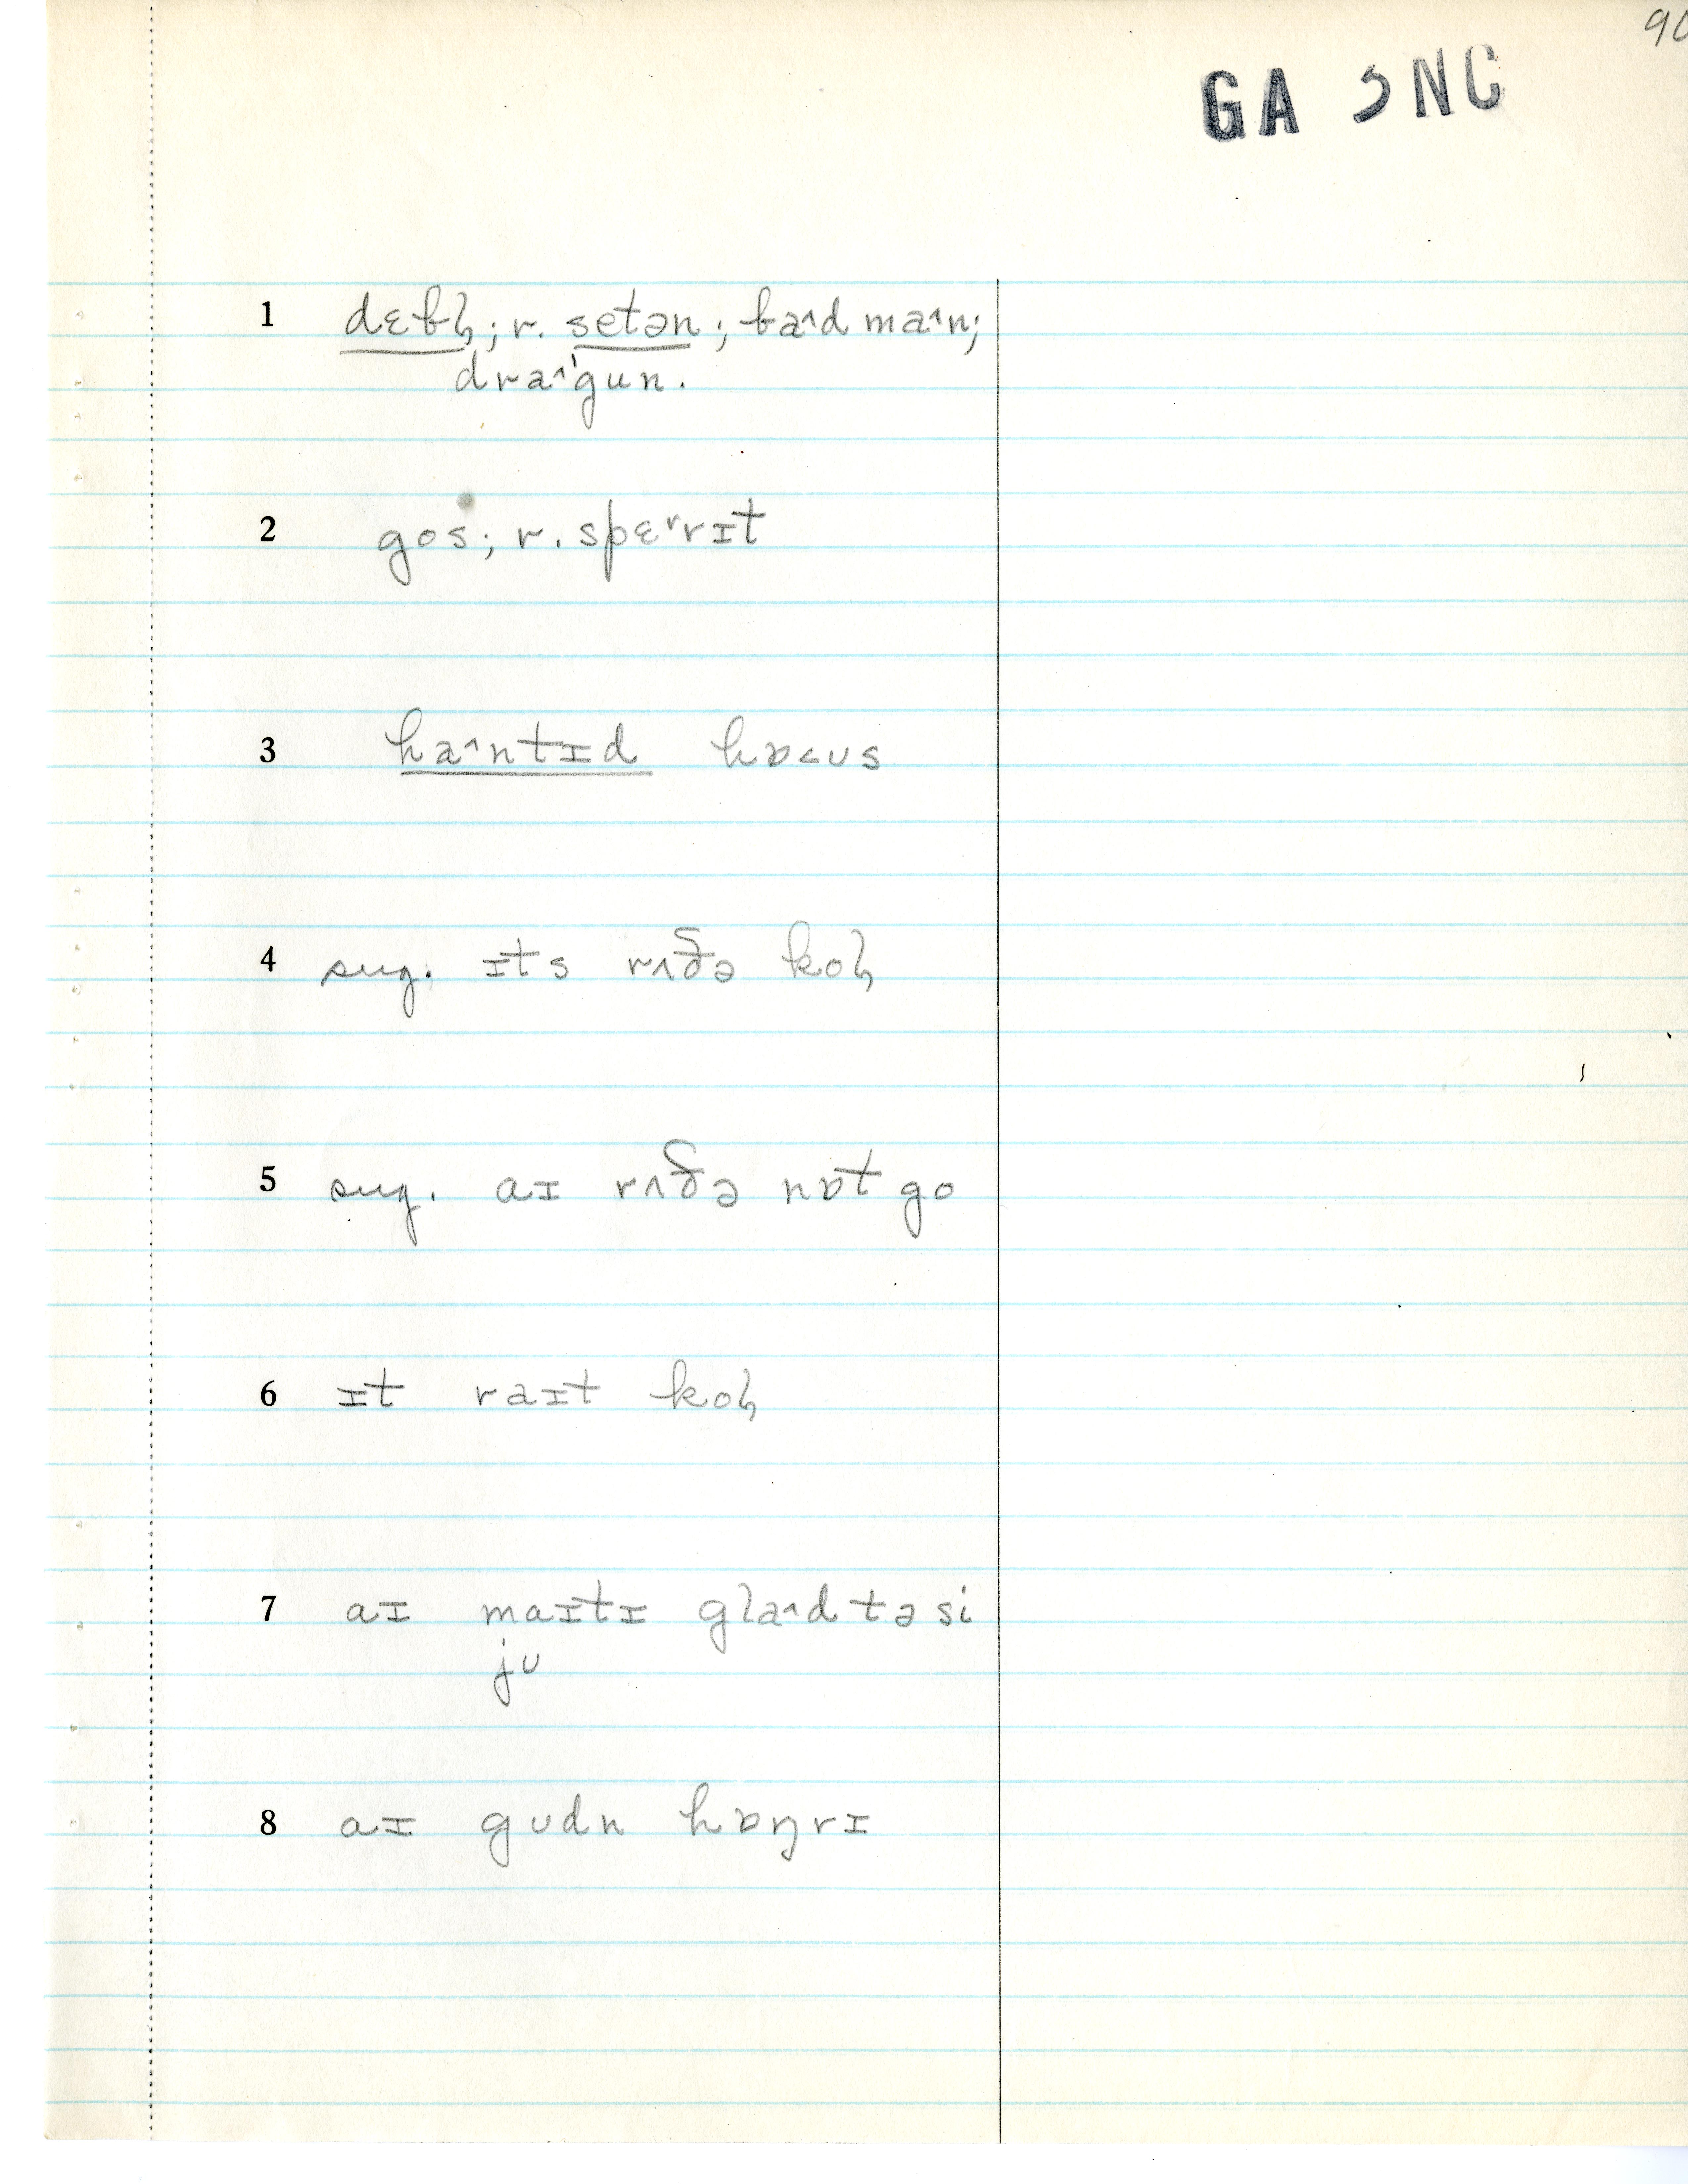 90
GA 5NC
1 dɛbl̩; r. setən; ba˄d ma˄n;
dra˄'gun.
2 gos; r. spɛ˅rɪt
3 ha˄ntɪd hɒ˂ʊs
4 sug. ɪts rʌðə kol̩
5 sug. aɪ rʌðə nɒt go
6 ɪt raɪt kol̩
7 aɪ maɪtɪ gla˄d tə si
jʊ
8 aɪ gʊdn hɒŋrɪ